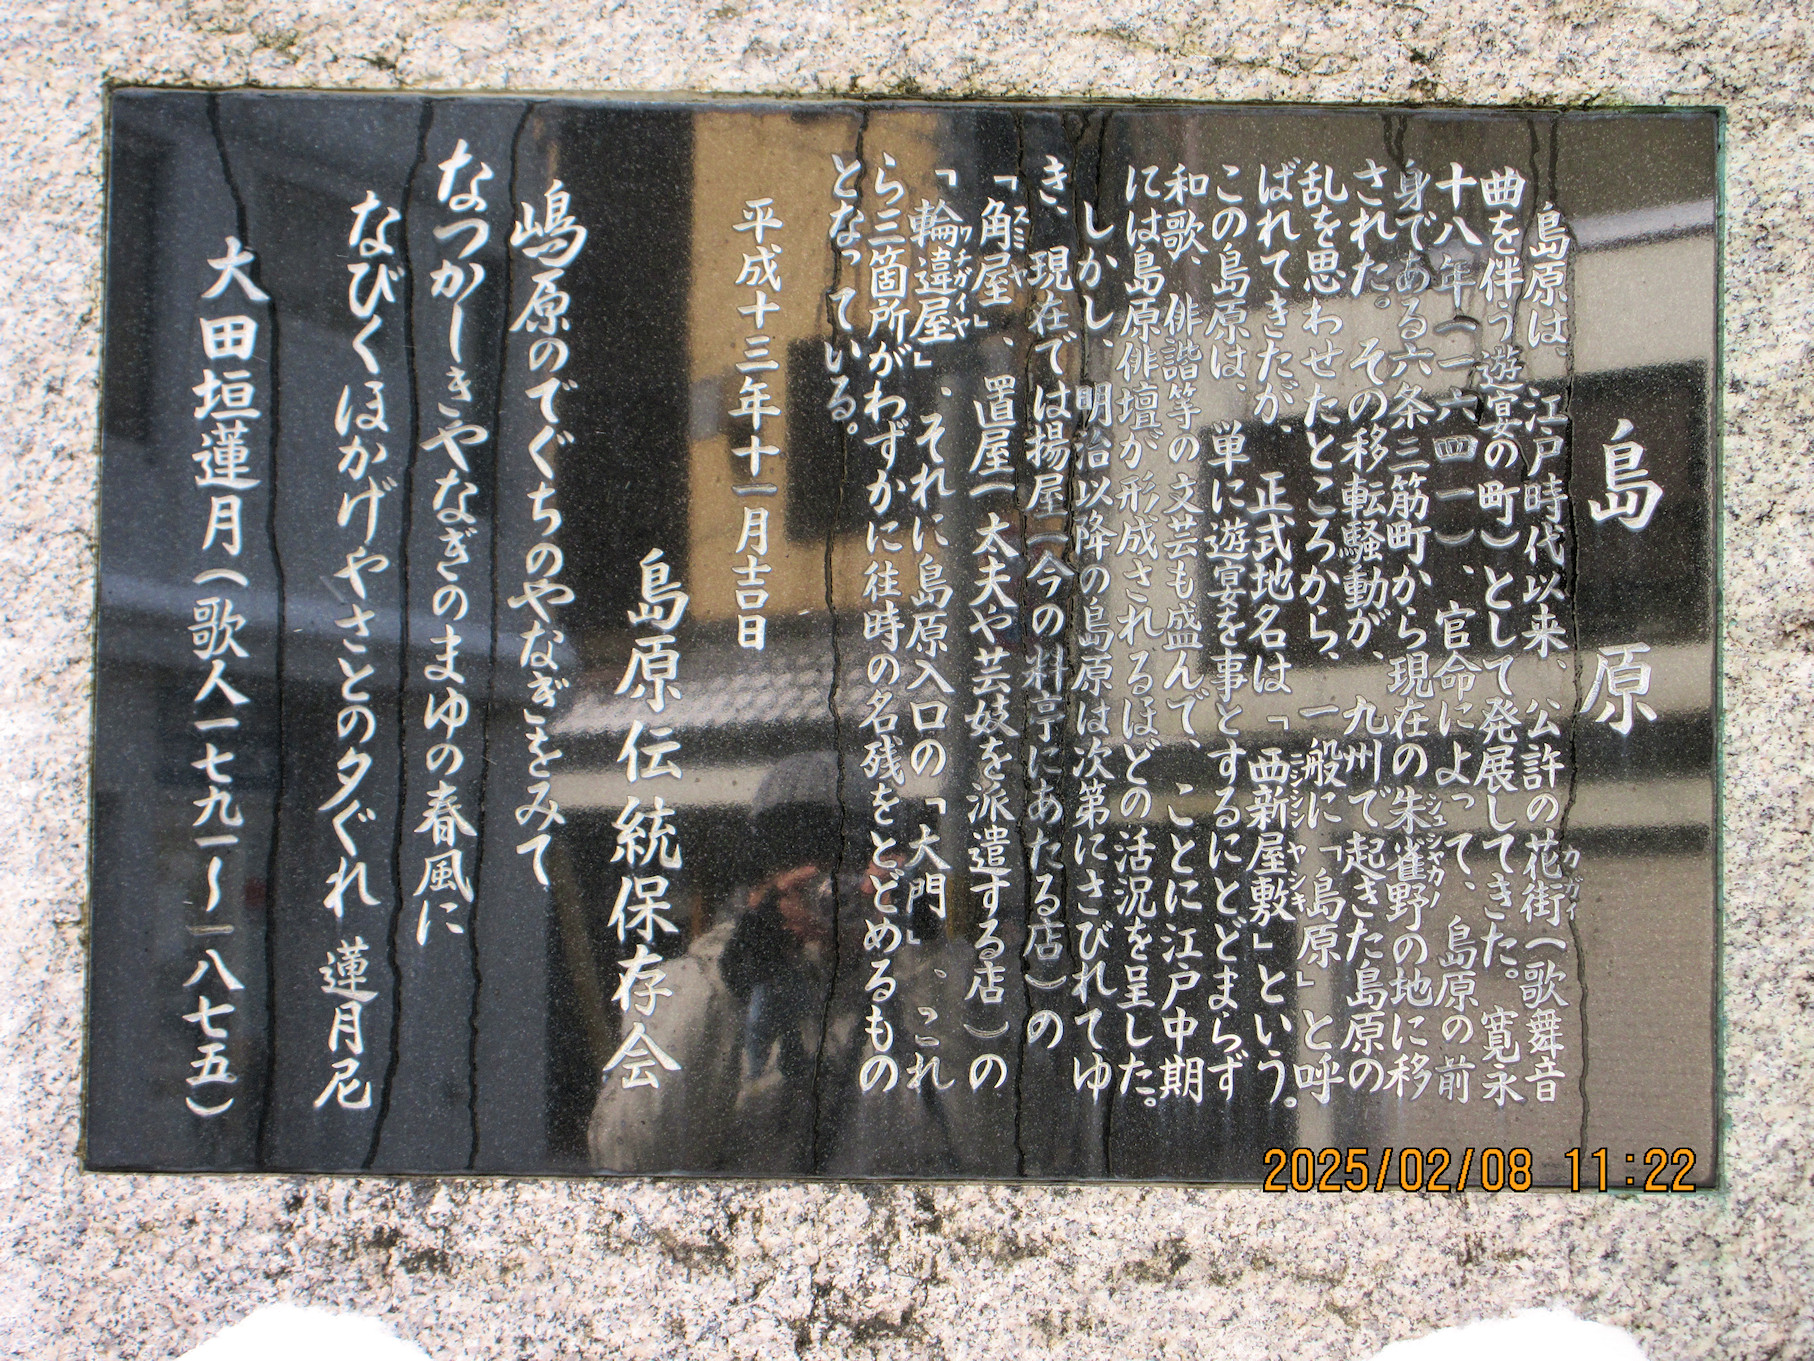 島原
島原は、江戸時代以来、公許の花街（歌舞音
カガイ
曲を伴う遊宴の町）として発展してきた。寛永
十八年（一六四一）、官命によって、島原の前
身である六条三筋町から現在の朱雀野の地に移
シュジャカノ
された。その移転騒動が、九州で起きた島原の
乱を思わせたところから、一般に「島原」と呼
ばれてきたが、正式地名は「西新屋敷」という。
ニシシンヤシキ
この島原は、単に遊宴を事とするにとどまらず
和歌、俳諧等の文芸も盛んで、ことに江戸中期
には島原俳壇が形成されるほどの活況を呈した。
しかし、明治以降の島原は次第にさびれてゆ
き、現在では揚屋（今の料亭にあたる店）の
「角屋」、置屋（太夫や芸妓を派遣する店）の
スミヤ
「輪違屋」、それに島原入口の「大門」、これ
ワチガイヤ
ら三箇所がわずかに往時の名残をとどめるもの
となっている。
平成十三年十一月吉日
島原伝統保存会
嶋原のでぐちのやなぎをみて
なつかしきやなぎのまゆの春風に
なびくほかげやさとの夕ぐれ 蓮月尼
大田垣蓮月（歌人一七九一～一八七五）
2025/02/08 11:22